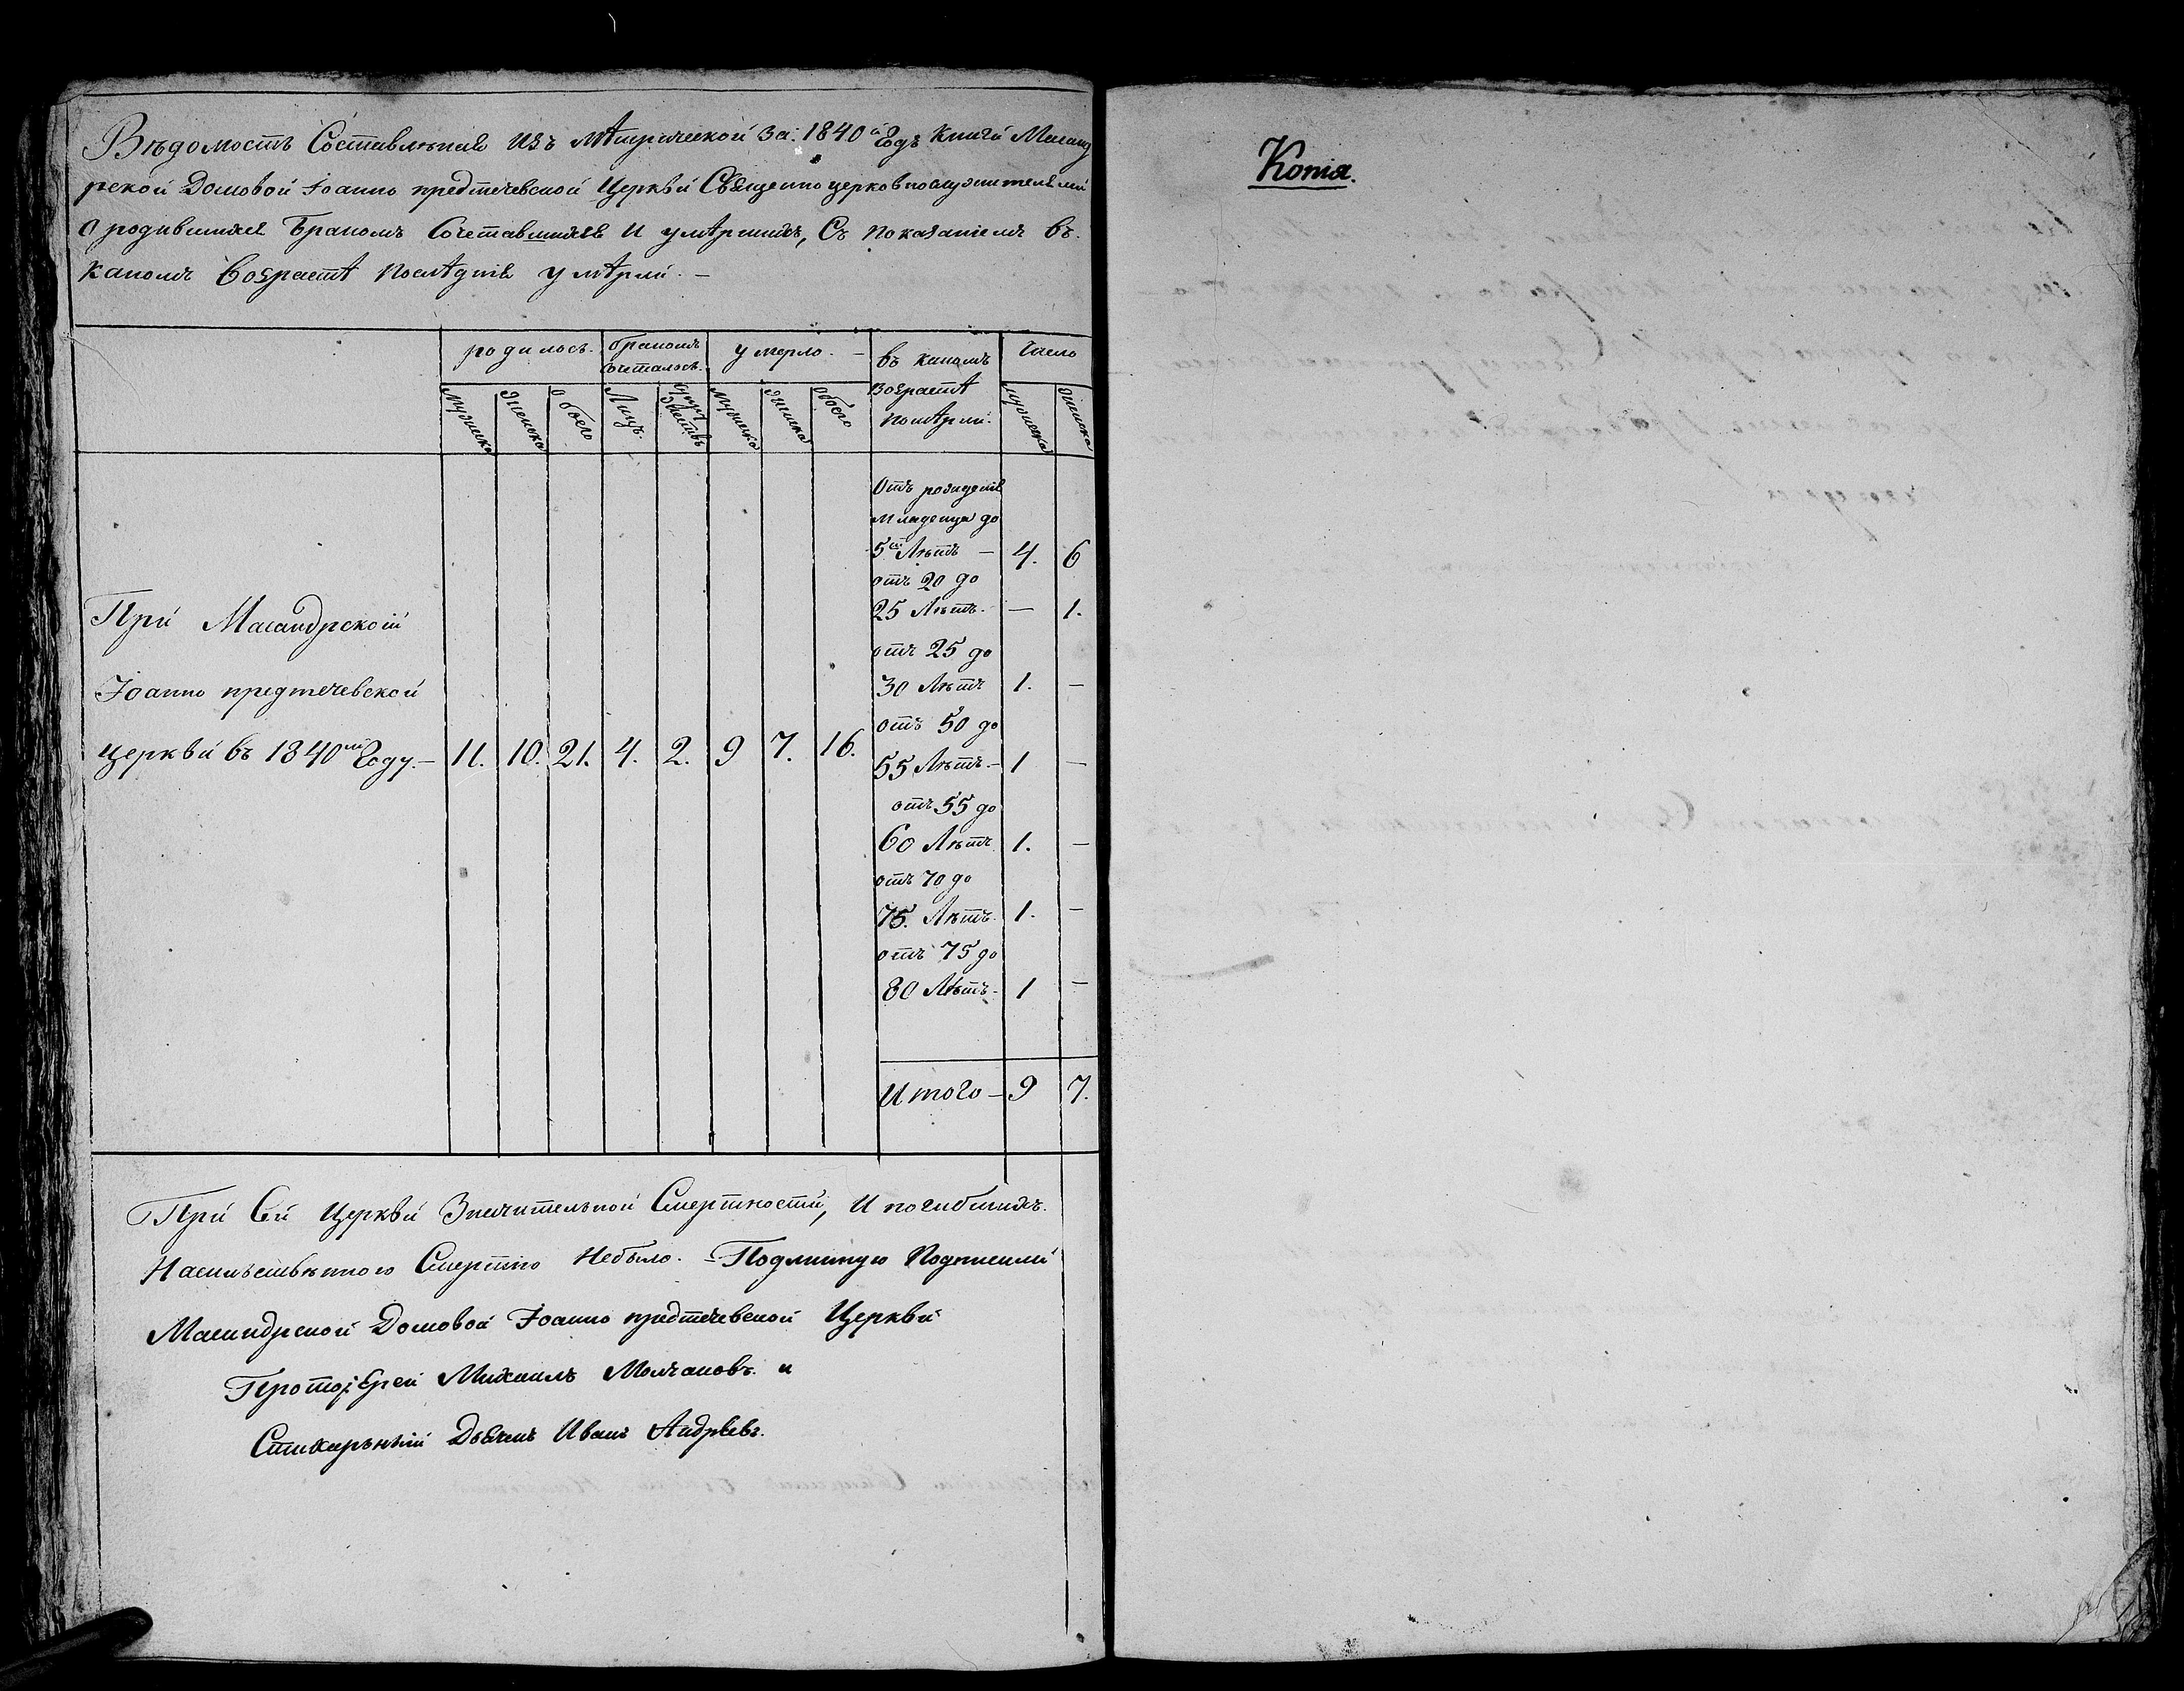 Вѣдомость Составленая изъ мѣтрической за: 1840й Годъ Книги Масанд
рской Домовой Іоанно предтечевской Церкви Священно церковнослужителями
О родившихся Бракомъ Сочетавшихся и умѣршихъ, Съ показаніемъ въ
какомъ Возрастѣ послѣдніе умѣрли. —
родилось. бракомъ сочталось. умерло. — въ какомъ возрастѣ помѣрли. Число
мужеска женска обоего Лицъ. супружествъ мужеска женска обоего мужеска женска
Отъ рожденія
младенца до
5ти Лѣтъ — 4. 6
отъ 20 до
25 Лѣтъ. — 1.
отъ 25 до
30 Лѣтъ 1. —
отъ 50 до
55 Лѣтъ. — 1 —
отъ 55 до
60 Лѣтъ 1. —
отъ 70 до
75. Лѣтъ. 1. —
отъ 75 до
80 Лѣтъ. 1 —
Итого — 9 7.
При Масандрской
Іоанно предтечевской
церкви въ 1840мъ Году. — 11. 10. 21. 4. 2. 9 7. 16.
При Сей Церкви Значительной Смертности, и погибшихъ
Насильственною Смертію небыло. — Подлинную Подписали
Масандрской Домовой Іоанно предтечевской Церкви
Протоіерей Михаилъ Молчановъ. и
Стихарный Дьячекъ Иванъ Андреевъ.
Копія.